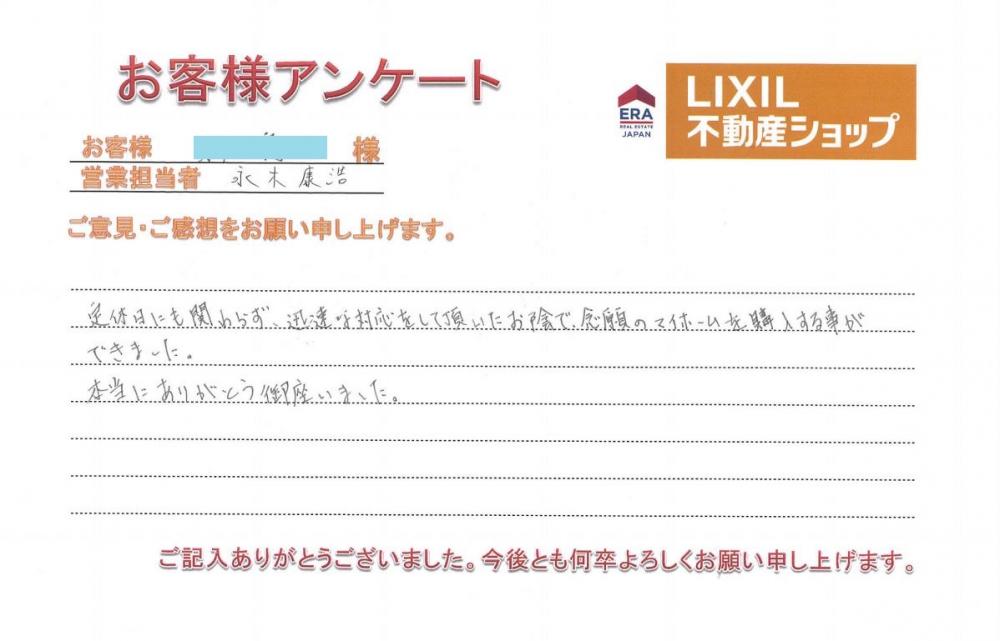 お客様アンケート
ERA
REAL ESTATE
JAPAN
LIXIL
不動産ショップ
お客様 様
営業担当者 永木康浩
ご意見・ご感想をお願い申し上げます。
定休日にも関わらず、迅速な対応をして頂いたお陰で、念願のマイホームを購入する事が
できました。
本当にありがとう御座いました。
ご記入ありがとうございました。今後とも何卒よろしくお願い申し上げます。